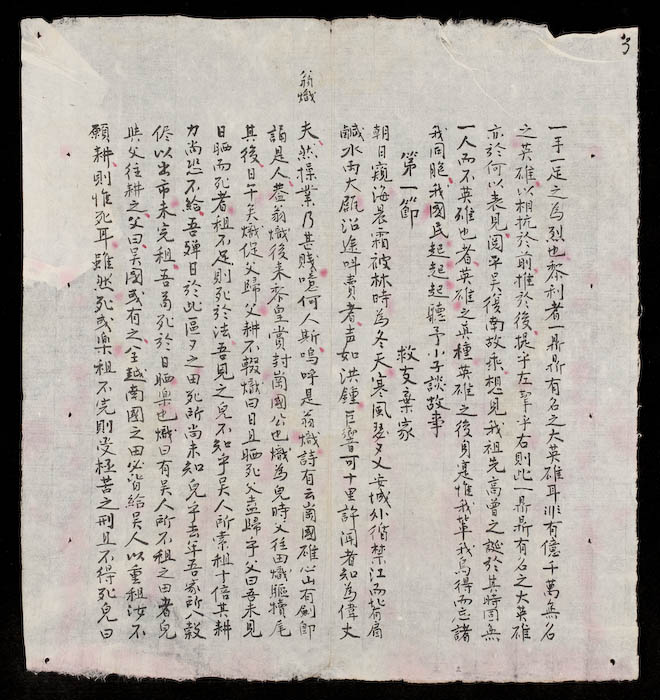 3
一手一足之為烈也黎利者一鼎鼎有名之大英雄耳非有億千萬無名
之英雄以相杭於前推於後提乎左挈乎右則此一鼎鼎有名之大英雄
亦於何以表見閱平吳後南故乘想見我祖先高曾之誕於其時固無
一人而不英雄也者英雄之真種英雄之後身寔惟我輩我烏得而忘諸
我同胞我國民起起起聽予小子談故事
第一節 救友棄家
朝日窺海晨霜被林時為冬天寒風瑟夕乂安城外循禁江而皆肩
鹹水兩大㽺沿途叫賣者声如洪鍾巨響可十里許聞者知為偉丈
翁熾
夫然操業乃甚賤噫何人斯嗚呼是翁熾詩有云崗國雄心山有劍卽
謁是人蓋翁熾後来黎皇賞封崗國公也熾為兒時父往田熾驅犢尾
其後日午炙熾促父歸父耕不輟熾曰日且晒死父盍歸乎父曰吾未見
日晒而死者租不足則死於法吾見之兒不知乎吴人所索租十倍其耕
力尚恐不給吾殫日於此區夕之田死所尚未知兒乎去年吾家所入穀
侭以出市未完租吾苟死於日晒樂也熾曰有吴人所不租之田者兒
與父往耕之父曰吴國或有之全越南國之田必皆給吴人以重租汝不
願耕則惟死耳雖然死或樂租不完則受極苦之刑且不得死兒曰